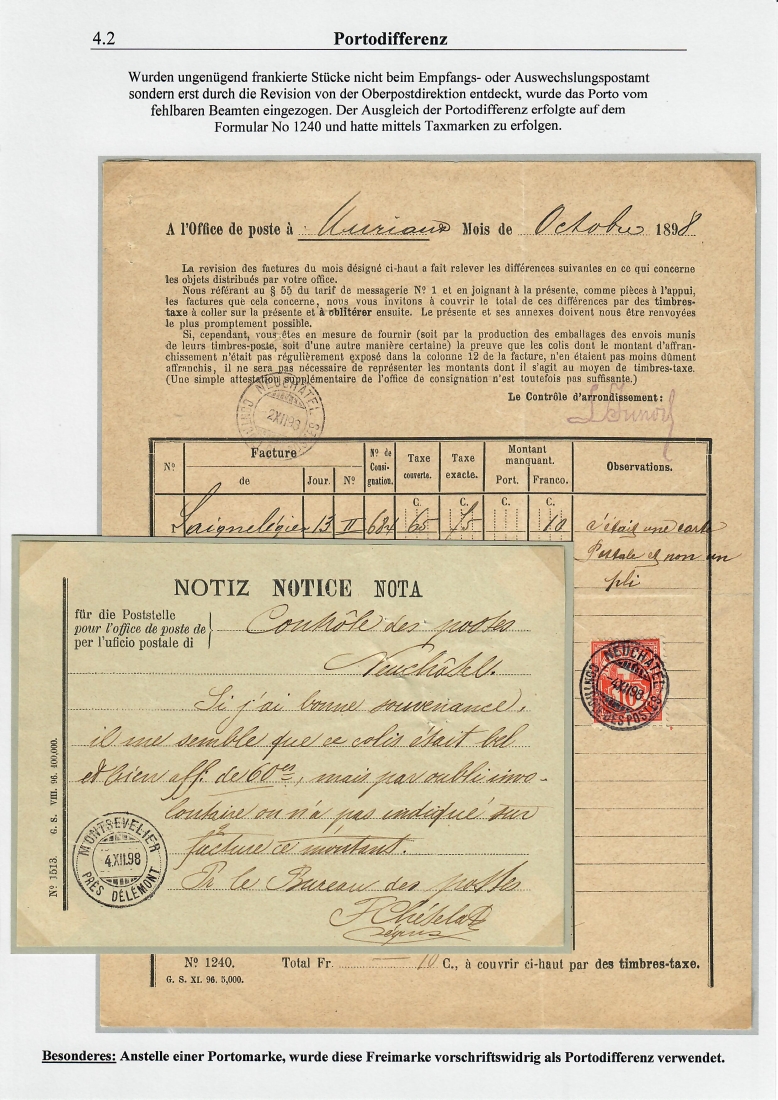 4.2 Portodifferenz
Wurden ungenügend frankierte Stücke nicht beim Empfangs- oder Auswechslungspostamt
sondern erst durch die Revision von der Oberpostdirektion entdeckt, wurde das Porto vom
fehlbaren Beamten eingezogen. Der Ausgleich der Portodifferenz erfolgte auf dem
Formular No 1240 und hatte mittels Taxmarken zu erfolgen.
A l'Office de poste à Muriaux Mois de Octobre 1898
La revision des factures du mois désigné ci-haut a fait relever les différences suivantes en ce qui concerne
les objets distribués par votre office.
Nous référant au § 55 du tarif de messagerie Nº 1 et en joignant à la présente, comme pièces à l'appui,
les factures que cela concerne, nous vous invitons à couvrir le total de ces différences par des timbres-
taxe à coller sur la présente et à oblitérer ensuite. Le présente et ses annexes doivent nous être renvoyées
le plus promptement possible.
Si, cependant, vous êtes en mesure de fournir (soit par la production des emballages des envois munis
de leurs timbres-poste, soit d'une autre manière certaine) la preuve que les colis dont le montant d'affran-
chissement n'était pas régulièrement exposé dans la colonne 12 de la facture, n'en étaient pas moins dûment
affranchis, il ne sera pas nécessaire de représenter les montants dont il s'agit au moyen de timbres-taxe.
(Une simple attestation supplémentaire de l'office de consignation n'est toutefois pas suffisante.)
Le Contrôle d'arrondissement:
NEUCHATEL
2XII98
Nº Facture Nº de Consi- gnation. Taxe couverte. Taxe exacte. Montant manquant. Observations.
de Jour. Nº Port. Franco.
C. C. C. C.
Saignelégier 13 II 684 65 75 10 c'était une carte
Postale et non un
pli
NOTIZ NOTICE NOTA
für die Poststelle
pour l'office de poste de Contrôle des postes
per l'uficio postale di
Neuchâtel.
Si j'ai bonne souvenance,
il me semble que ce colis était bel
et bien aff. de 60 es, mais par oubli invo-
lontaire on n'a pas indiqué sur
facture ce montant.
Pr le Bureau des postes
Nº 1513. G. S. VIII. 96. 400,000.
MONTSEVELIER
4.XII.98
PRÈS DELÉMONT
NEUCHATEL
4XII98
CONTRÔLE DES POSTES
10
Nº 1240. Total Fr. — 10 C., à couvrir ci-haut par des timbres-taxe.
G. S. XI. 96. 5,000.
Besonderes: Anstelle einer Portomarke, wurde diese Freimarke vorschriftswidrig als Portodifferenz verwendet.